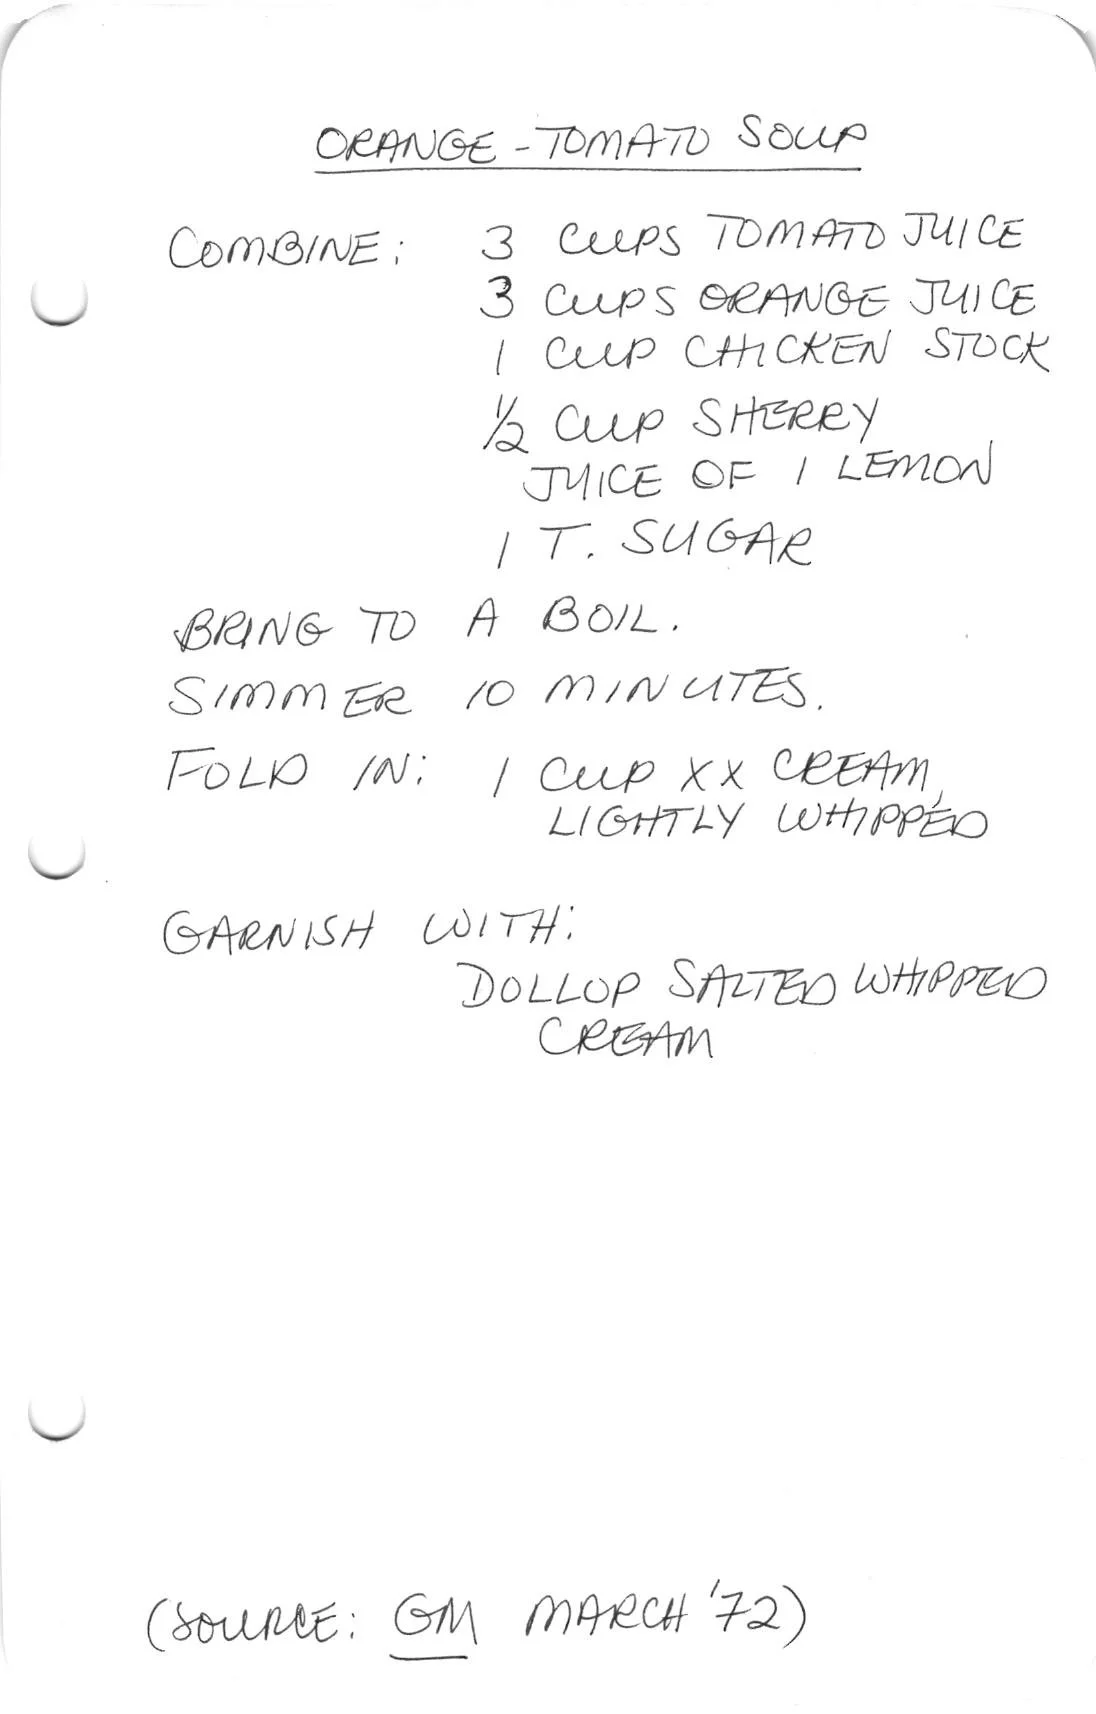 ORANGE-TOMATO SOUP
COMBINE: 3 CUPS TOMATO JUICE
3 CUPS ORANGE JUICE
1 CUP CHICKEN STOCK
1/2 CUP SHERRY
JUICE OF 1 LEMON
1 T. SUGAR
BRING TO A BOIL.
SIMMER 10 MINUTES.
FOLD IN: 1 CUP XX CREAM,
LIGHTLY WHIPPED
GARNISH WITH:
DOLLOP SALTED WHIPPED
CREAM
(SOURCE: GM MARCH '72)